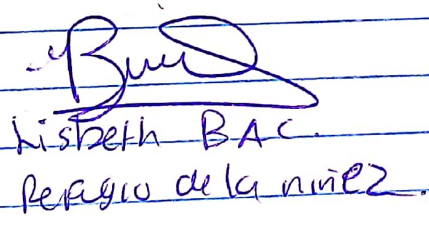 Lisbeth BAC.
Refugio de la niñez.